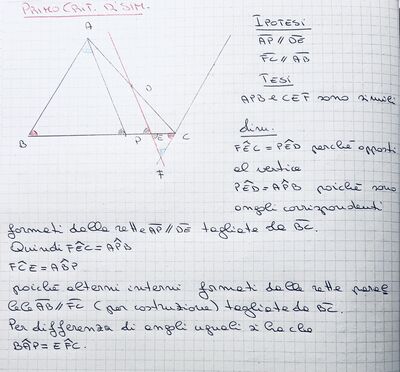 PRIMO CRIT. DI SIM.
A
D
B
P
E
C
F
IPOTESI
AP // DE
FC // AB
TESI
APB e CEF sono simili
dim.
FÊC = PÊD perché opposti
al vertice
PÊD = AP̂B poiché sono
angoli corrispondenti
formati dalle rette AP // DE tagliate da BC.
Quindi FÊC = AP̂B
FĈE = AB̂P
poiché alterni interni formati dalle rette paral
lele AB // FC (per costruzione) tagliate da BC.
Per differenza di angoli uguali si ha che
BÂP = EF̂C.